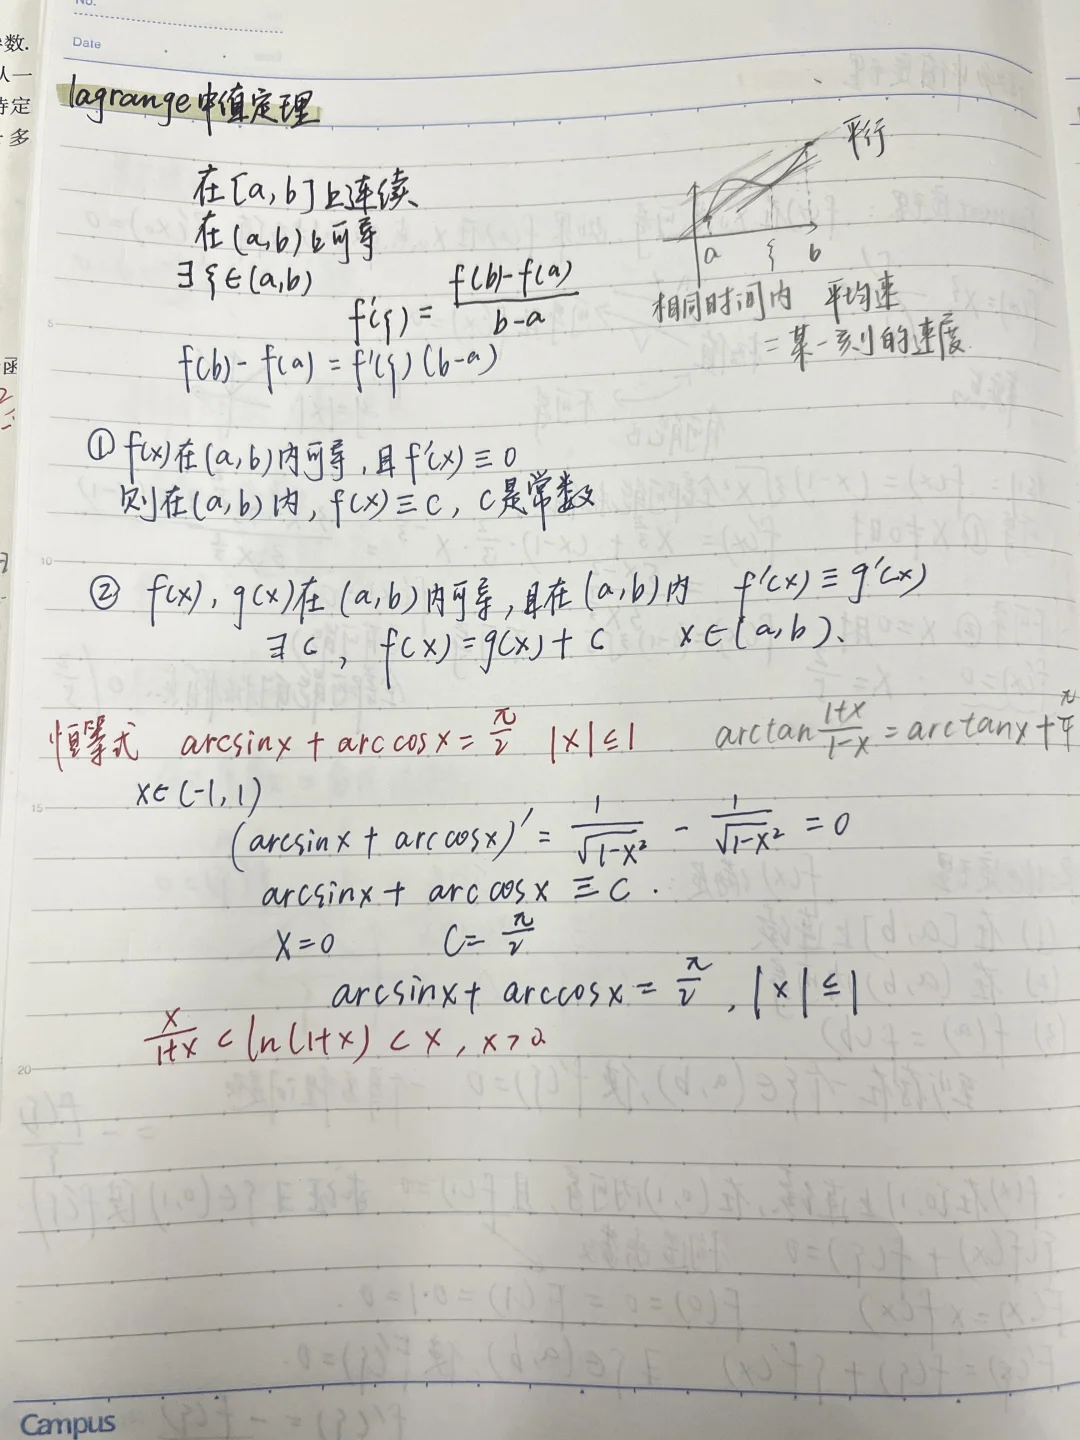 No.
Date
lagrange中值定理
在[a,b]上连续
在(a,b)上可导
∃ξ∈(a,b)
f'(ξ) = \frac{f(b)-f(a)}{b-a}
f(b)-f(a)=f'(ξ)(b-a)
平行
a ξ b
相同时间内 平均速
=某一刻的速度
① f(x)在(a,b)内可导,且f'(x)≡0
则在(a,b)内,f(x)≡C,C是常数
② f(x),g(x)在(a,b)内可导,且在(a,b)内 f'(x)≡g'(x)
∃C,f(x)=g(x)+C x∈(a,b).
恒等式 arcsinx+arccosx=\frac{π}{2} |x|≤1
arctan\frac{1+x}{1-x}=arctanx+\frac{π}{4}
x∈(-1,1)
(arcsinx+arccosx)'=\frac{1}{\sqrt{1-x²}}-\frac{1}{\sqrt{1-x²}}=0
arcsinx+arccosx≡C.
x=0 C=\frac{π}{2}
arcsinx+arccosx=\frac{π}{2},|x|≤1
\frac{x}{1+x}<ln(1+x)<x,x>0
5
10
15
20
Campus